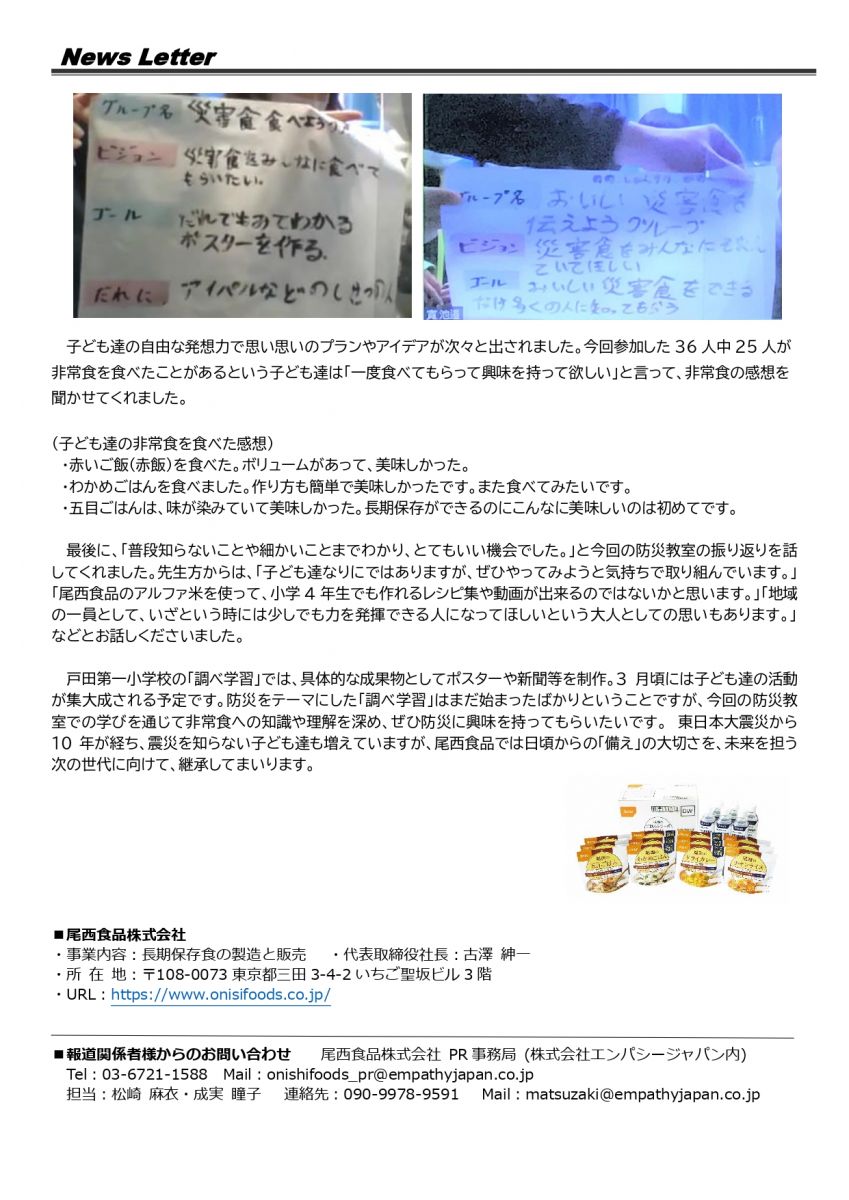 News Letter
グループ名 災害食食べよう
ビジョン 災害食をみんなに食べて
もらいたい。
ゴール だれでもみてわかる
ポスターを作る。
だれに アイパルなどの
グループ名 おいしい災害食を
伝えようグループ
ビジョン 災害食をみんなに
ていてほしい
ゴール おいしい災害食をできる
だけ多くの人に知ってもらう
子ども達の自由な発想力で思い思いのプランやアイデアが次々と出されました。今回参加した 36 人中 25 人が
非常食を食べたことがあるという子ども達は「一度食べてもらって興味を持って欲しい」と言って、非常食の感想を
聞かせてくれました。
（子ども達の非常食を食べた感想）
・赤いご飯（赤飯）を食べた。ボリュームがあって、美味しかった。
・わかめごはんを食べました。作り方も簡単で美味しかったです。また食べてみたいです。
・五目ごはんは、味が染みていて美味しかった。長期保存ができるのにこんなに美味しいのは初めてです。
最後に、「普段知らないことや細かいことまでわかり、とてもいい機会でした。」と今回の防災教室の振り返りを話
してくれました。先生方からは、「子ども達なりにではありますが、ぜひやってみようと気持ちで取り組んでいます。」
「尾西食品のアルファ米を使って、小学 4 年生でも作れるレシピ集や動画が出来るのではないかと思います。」「地域
の一員として、いざという時には少しでも力を発揮できる人になってほしいという大人としての思いもあります。」
などとお話しくださいました。
戸田第一小学校の「調べ学習」では、具体的な成果物としてポスターや新聞等を制作。3 月頃には子ども達の活動
が集大成される予定です。防災をテーマにした「調べ学習」はまだ始まったばかりということですが、今回の防災教
室での学びを通じて非常食への知識や理解を深め、ぜひ防災に興味を持ってもらいたいです。 東日本大震災から
10 年が経ち、震災を知らない子ども達も増えていますが、尾西食品では日頃からの「備え」の大切さを、未来を担う
次の世代に向けて、継承してまいります。
■尾西食品株式会社
・事業内容：長期保存食の製造と販売 ・代表取締役社長：古澤 紳一
・所 在 地：〒108-0073 東京都三田 3-4-2 いちご聖坂ビル 3 階
・URL：https://www.onisifoods.co.jp/
■報道関係者様からのお問い合わせ 尾西食品株式会社 PR 事務局 (株式会社エンパシージャパン内)
Tel：03-6721-1588 Mail：onishifoods_pr@empathyjapan.co.jp
担当：松崎 麻衣・成実 瞳子 連絡先：090-9978-9591 Mail：matsuzaki@empathyjapan.co.jp